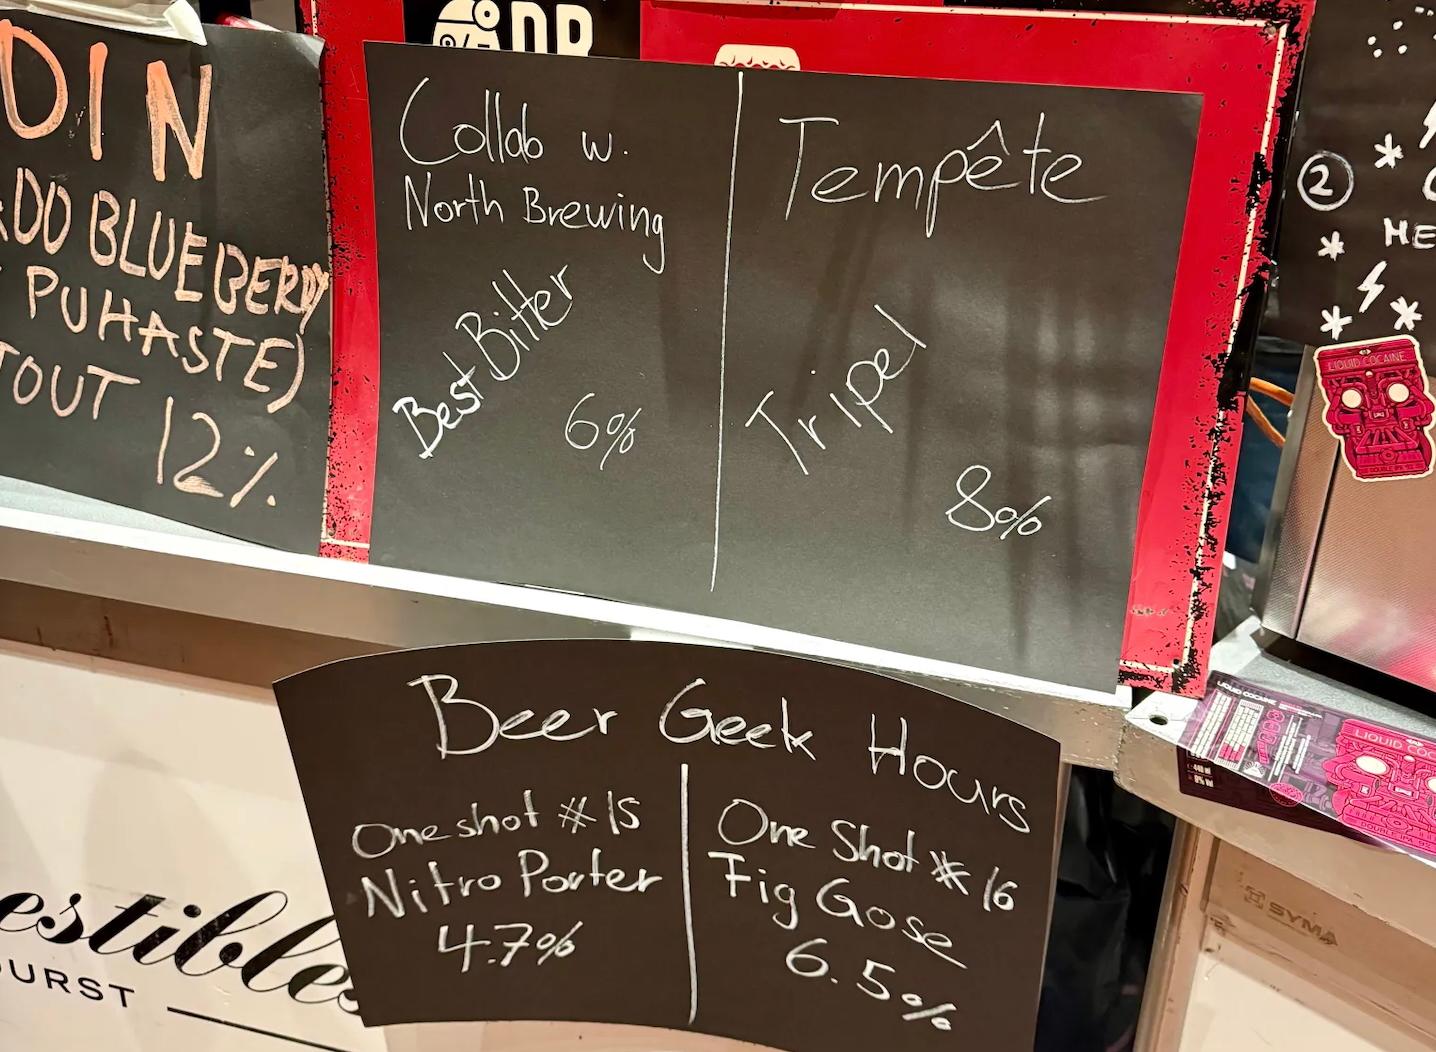 DIN
ADD BLUEBERRY
PUHASTE)
STOUT 12%
Collab w.
North Brewing
Best Bitter
6%
Tempête
Tripel
8%
②
Beer Geek Hours
One shot #15
Nitro Porter
4.7%
One Shot #16
Fig Gose
6.5%
LIQUID COCAINE
LIQUID COC
DOUBLE IPA
SYMA